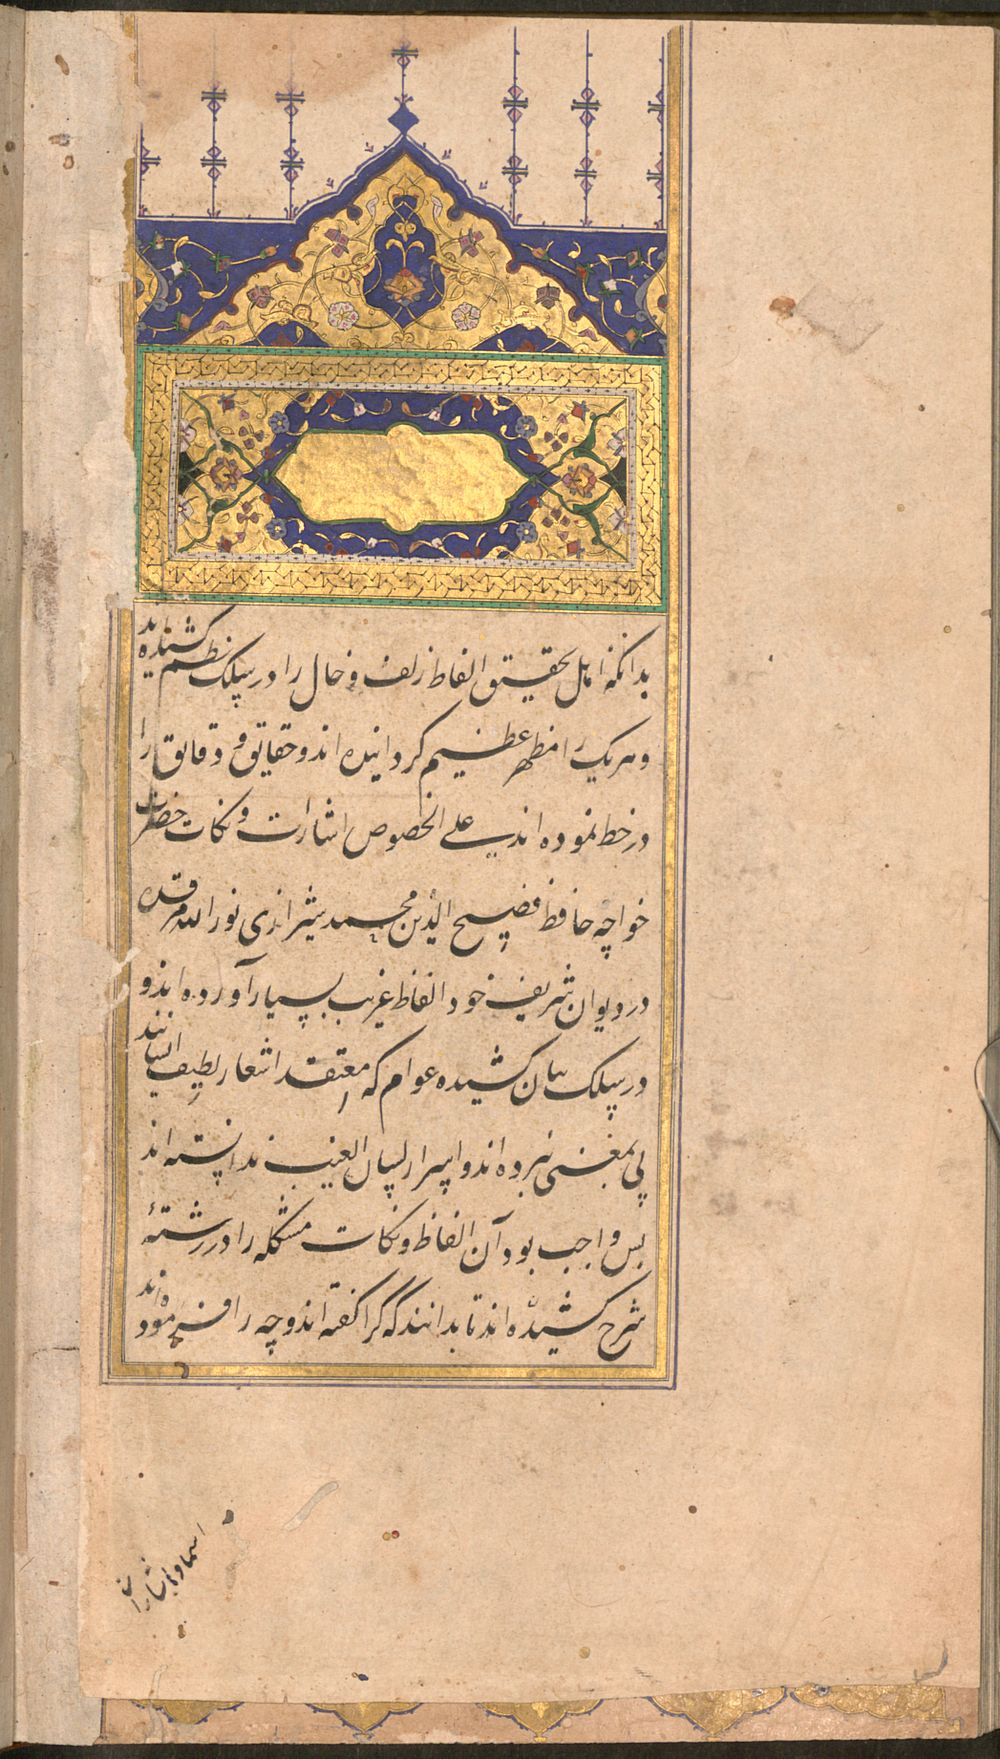 بدانکه اهل تحقیق الفاظ زلف و خال را در سلک نظم کشیده‌اند
و هر یک را مظهر عظیم گردانیده اند و حقایق و دقایق را
در خط نموده اند علی الخصوص اشارات و نکات حضرت
خواجه حافظ فصیح الدین محمد شیرازی نور الله مرقده
در دیوان شریف خود الفاظ غریب بسیار آورده اند و
در سلک بیان کشیده عوام که معتقد اشعار لطیف ایشانند
پی بمعنی نبرده اند و اسرار لسان الغیب ندانسته اند
پس واجب بود آن الفاظ و نکات مشکله را در رشتهٔ
شرح کشیده اند تا بدانند که کرا گفته اند و چه را فرموده‌اند
اسما و اشارات